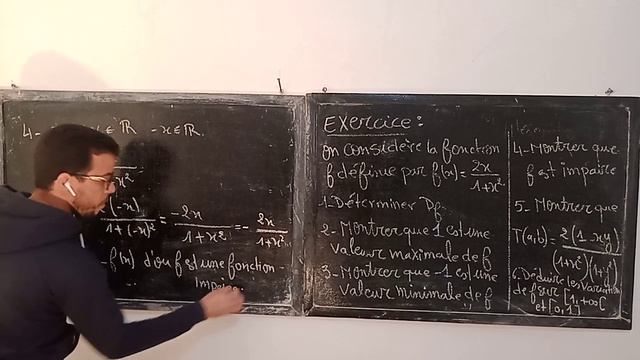 4- x∈ℝ -x∈ℝ
x²
(-x)
1+(-x)² = -2x / 1+x² = - 2x / 1+x²
-f(x) d'où f est une fonction
impaire
Exercice :
on considère la fonction
f définie par f(x) = 2x / 1+x²
1. Déterminer Df
2- Montrer que 1 est une
valeur maximale de f
3- Montrer que -1 est une
valeur minimale de f
4- Montrer que
f est impaire
5- Montrer que
T(a,b) = 2(1-xy)
(1+x²)(1+
6. Déduire les variation
de f sur [1,+∞[
et [0,1]